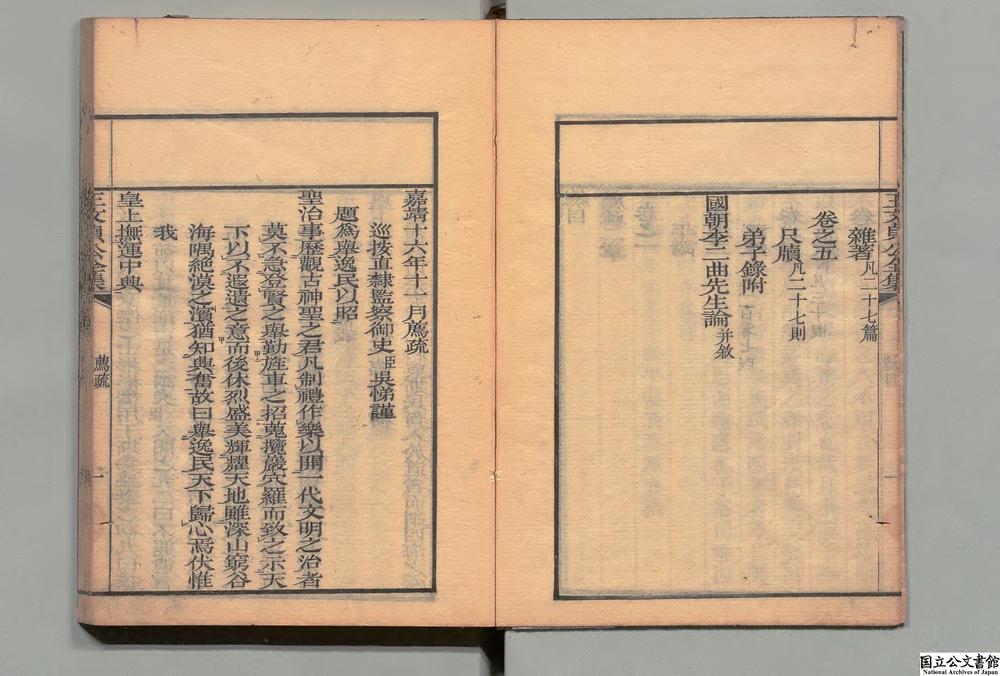 雜著凡二十七篇
卷之五
尺牘凡二十七則
弟子錄附
國朝李二曲先生論并敘
嘉靖十六年十一月薦疏
巡按直隸監察御史臣吳悌謹
題爲舉逸民以昭
聖治事歷觀古神聖之君凡制禮作樂以開一代文明之治者
莫不急登賢之舉勤旌車之招蒐攬巖穴羅而致之示天
下以不遐遺之意而後休烈盛美輝耀天地雖深山窮谷
海隅絕漠之濱猶知興奮故曰舉逸民天下歸心焉伏惟
我
皇上撫運中興
王文貞公全集
薦疏
一
国立公文書館
National Archives of Japan